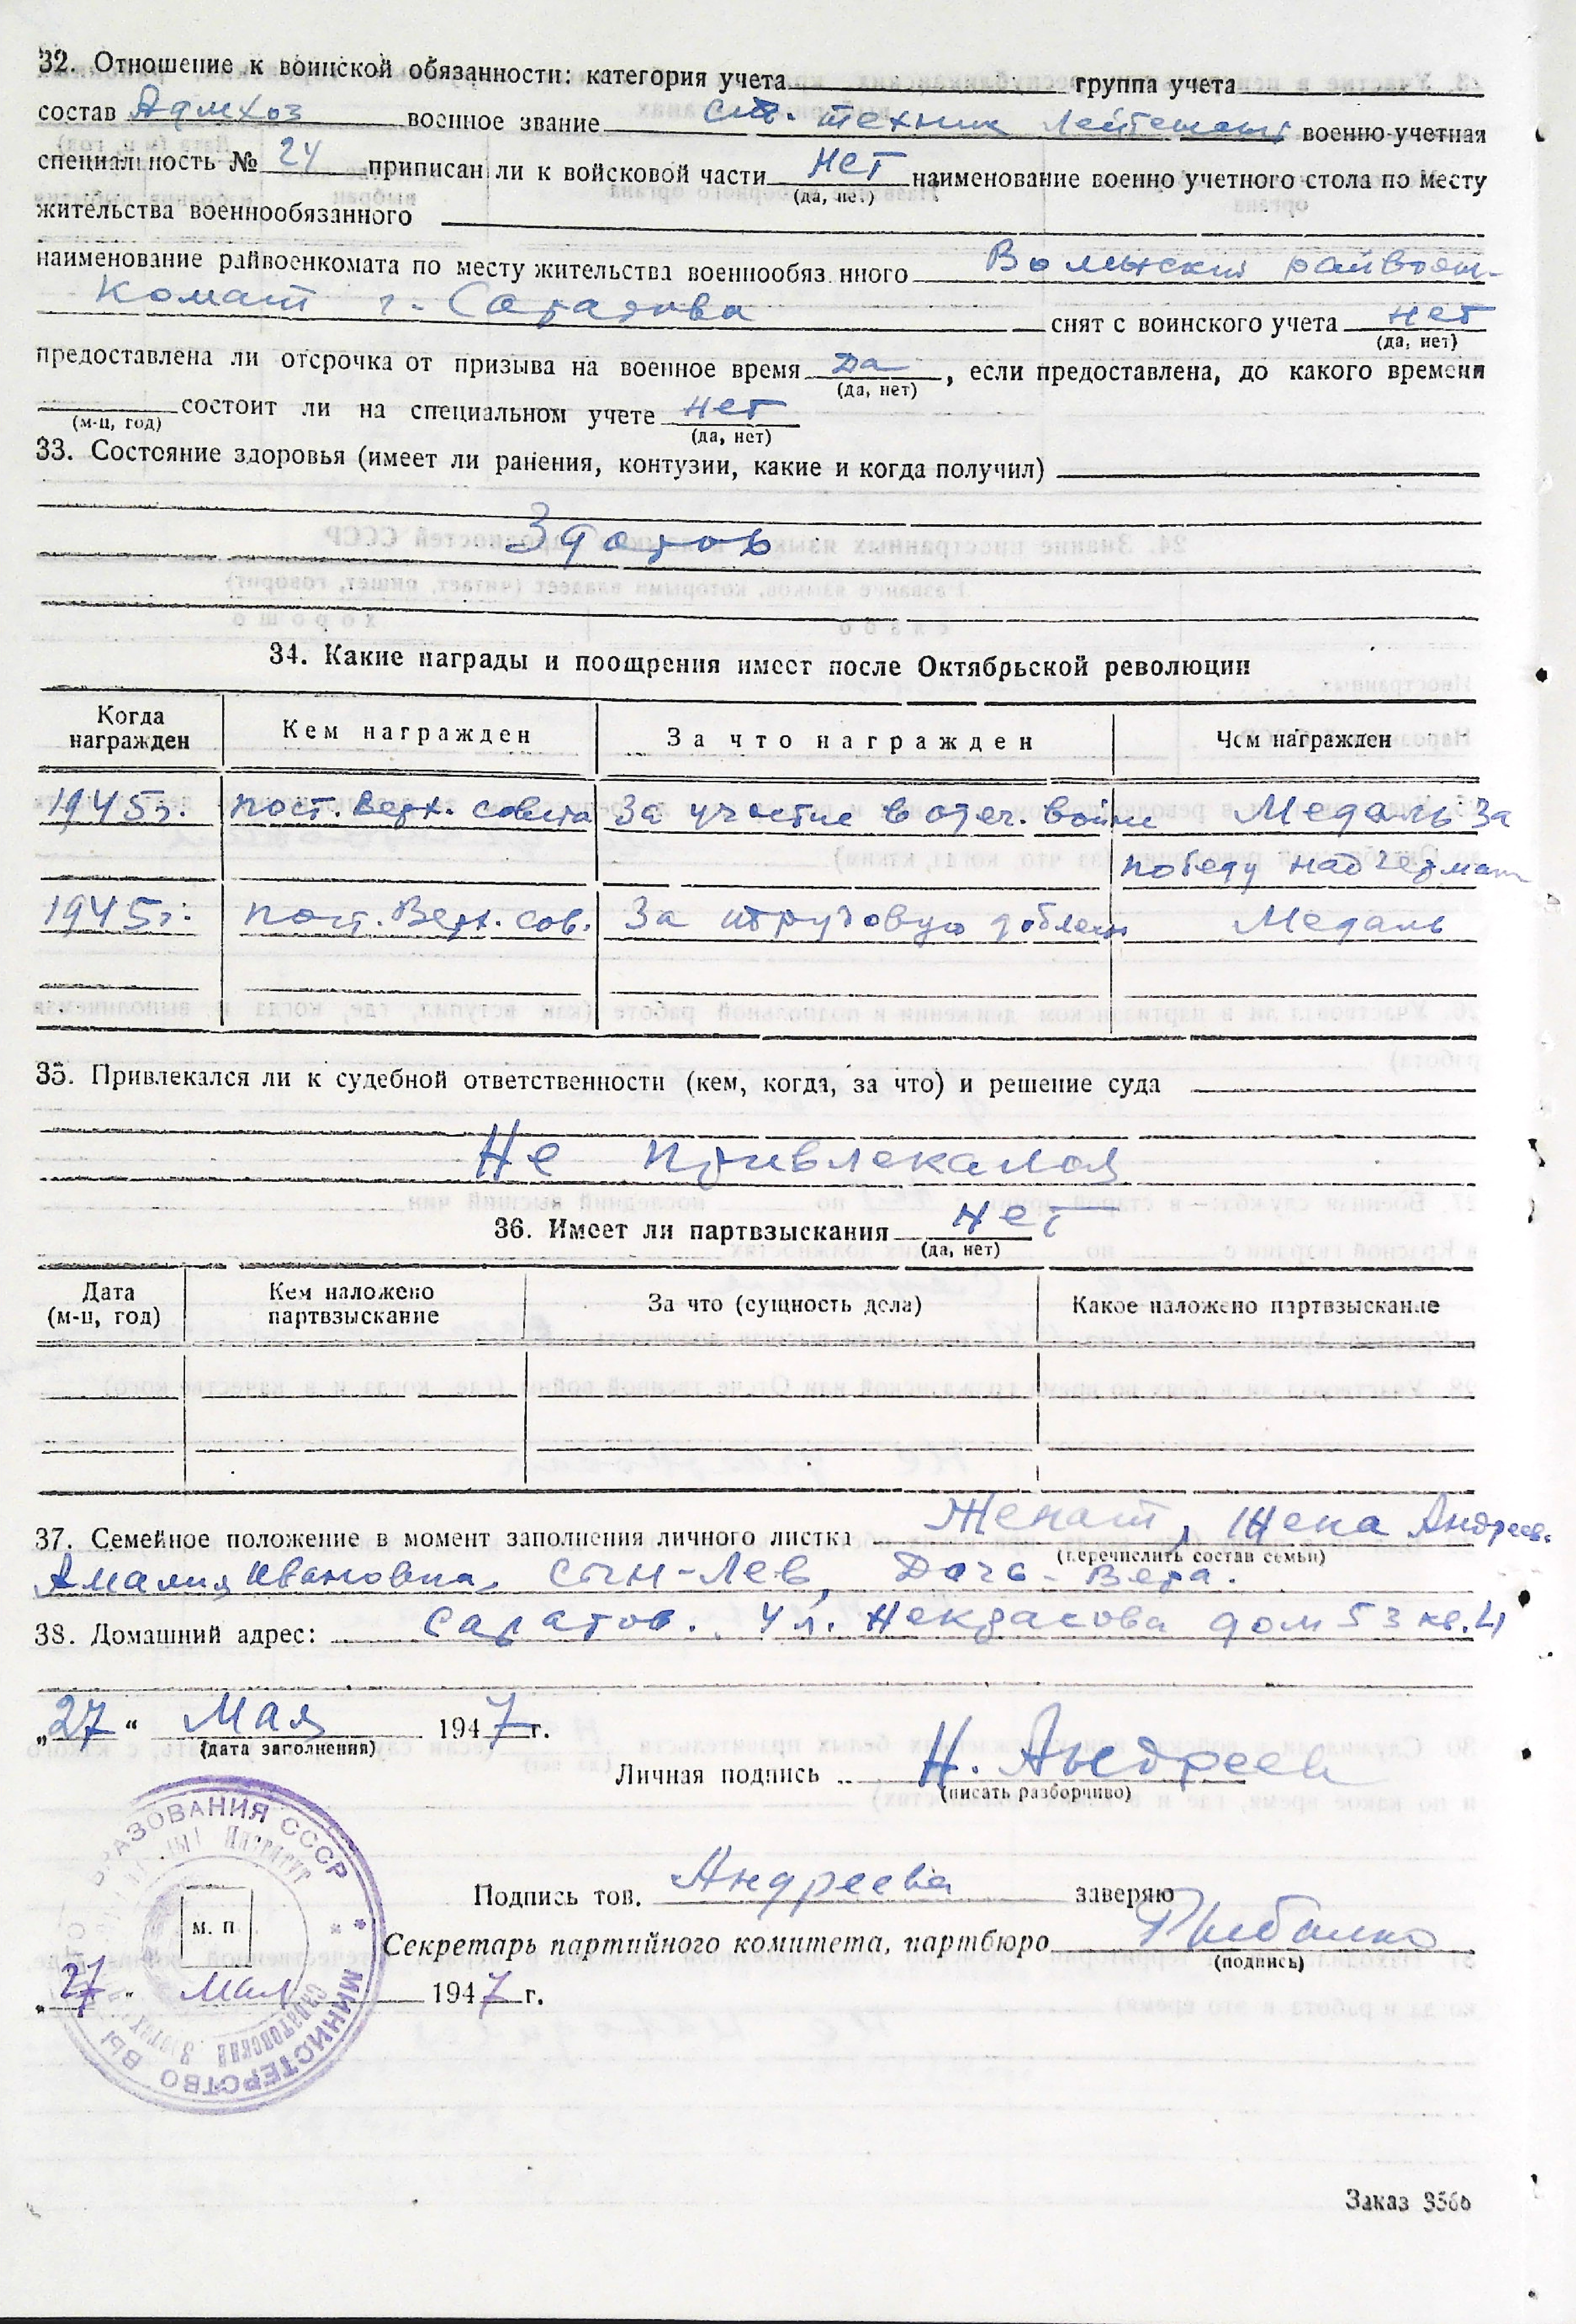 32. Отношение к воинской обязанности: категория учета группа учета
состав Адмхоз военное звание ст. техник лейтенант военно-учетная
специальность № 24 приписан ли к войсковой части нет наименование военно учетного стола по месту
(да, нет)
жительства военнообязанного
наименование райвоенкомата по месту жительства военнообяз нного Волжский райвоен-
комат г. Саратова снят с воинского учета нет
(да, нет)
предоставлена ли отсрочка от призыва на военное время да, если предоставлена, до какого времени
(да, нет)
состоит ли на специальном учете нет
(м-ц, год) (да, нет)
33. Состояние здоровья (имеет ли ранения, контузии, какие и когда получил)
Здоров
34. Какие награды и поощрения имеет после Октябрьской революции
Когда награжден Кем награжден За что награжден Чем награжден
1945г. пост. Верх. совета За участие в отеч. войне Медаль За
победу над Герман
1945г. пост. Верх. сов. За трудовую доблесть Медаль
35. Привлекался ли к судебной ответственности (кем, когда, за что) и решение суда
Не привлекался
36. Имеет ли партвзыскания нет
(да, нет)
Дата (м-ц, год) Кем наложено партвзыскание За что (сущность дела) Какое наложено партвзыскание
37. Семейное положение в момент заполнения личного листка Женат, Жена Андреев.
(перечислить состав семьи)
Амалия Ивановна, сын-Лев, Дочь-Вера.
38. Домашний адрес: Саратов. ул. Некрасова дом 53 кв. 4
„27“ Мая 1947г.
(дата заполнения)
Личная подпись Н. Андреев
(писать разборчиво)
Подпись тов. Андреева заверяю
Секретарь партийного комитета, партбюро Рыбалко
(подпись)
м. п
„27" мая 1947г.
МИНИСТЕРСТВО ВЫ РАЗОВАНИЯ СССР
Заказ 356